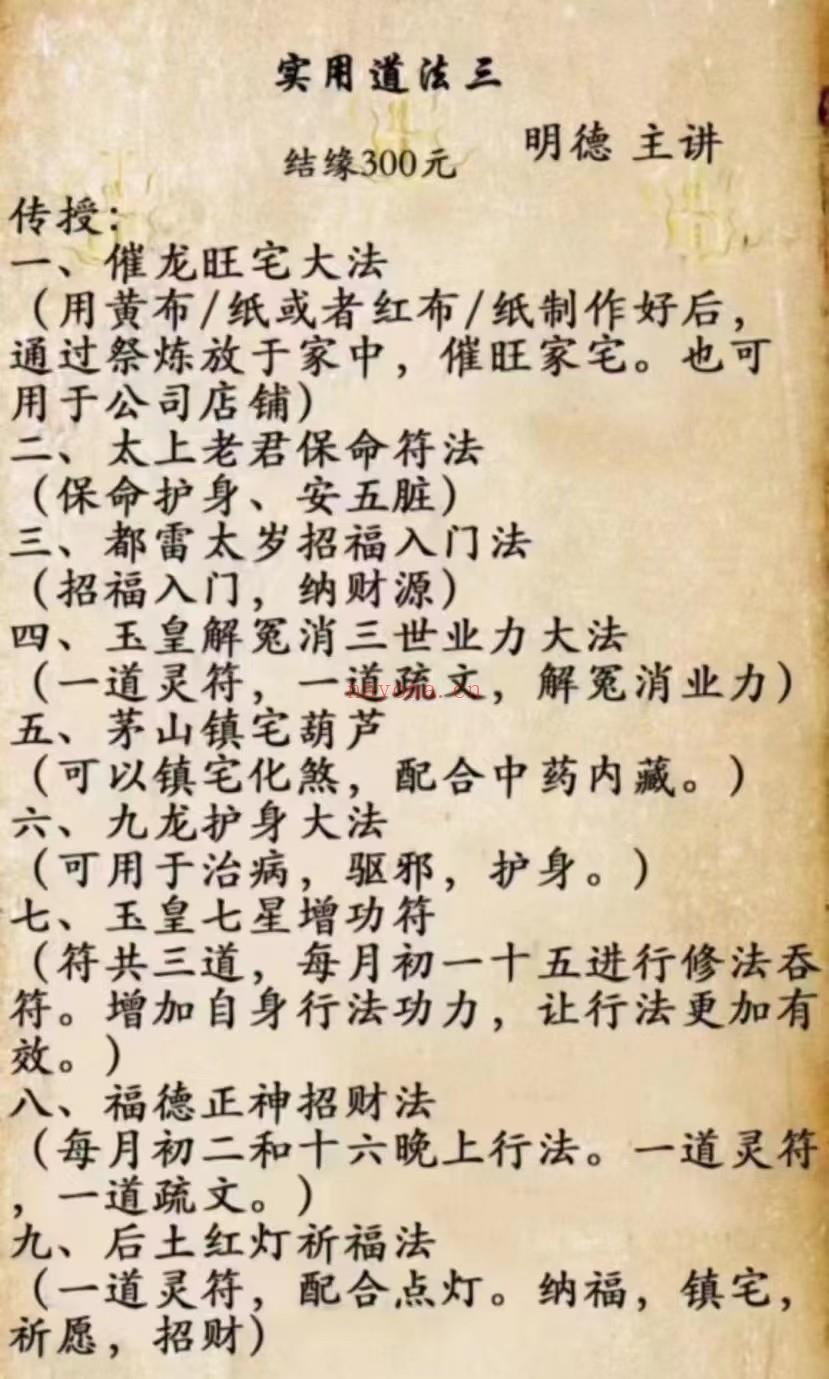 实用道法三
明德 主讲
结缘300元
传授：
一、催龙旺宅大法
（用黄布/纸或者红布/纸制作好后，
通过祭炼放于家中，催旺家宅。也可
用于公司店铺）
二、太上老君保命符法
（保命护身、安五脏）
三、都雷太岁招福入门法
（招福入门，纳财源）
四、玉皇解冤消三世业力大法
（一道灵符，一道疏文，解冤消业力）
五、茅山镇宅葫芦
（可以镇宅化煞，配合中药内藏。）
六、九龙护身大法
（可用于治病，驱邪，护身。）
七、玉皇七星增功符
（符共三道，每月初一十五进行修法吞
符。增加自身行法功力，让行法更加有
效。）
八、福德正神招财法
（每月初二和十六晚上行法。一道灵符
，一道疏文。）
九、后土红灯祈福法
（一道灵符，配合点灯。纳福，镇宅，
祈愿，招财）